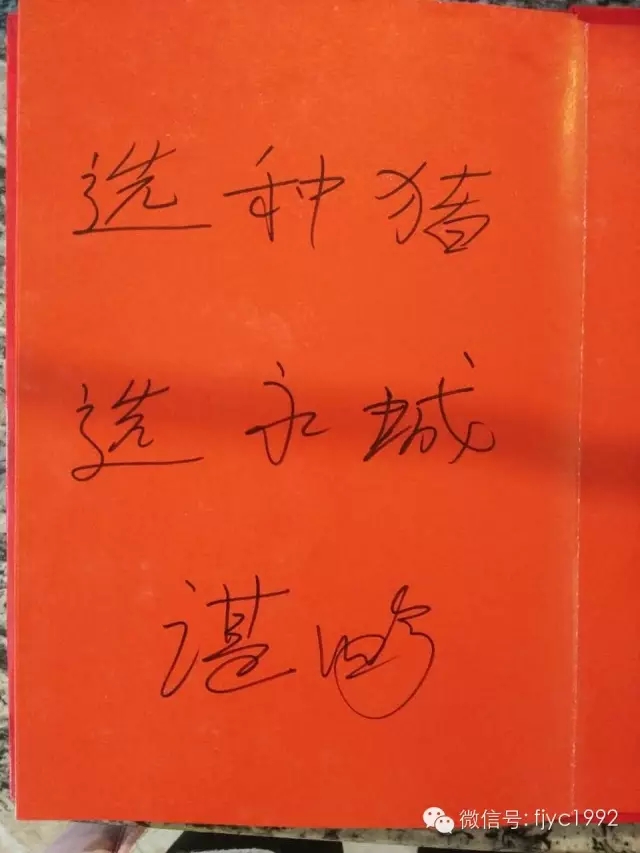 选种猪
选永城
谌
微信号: fjyc1992